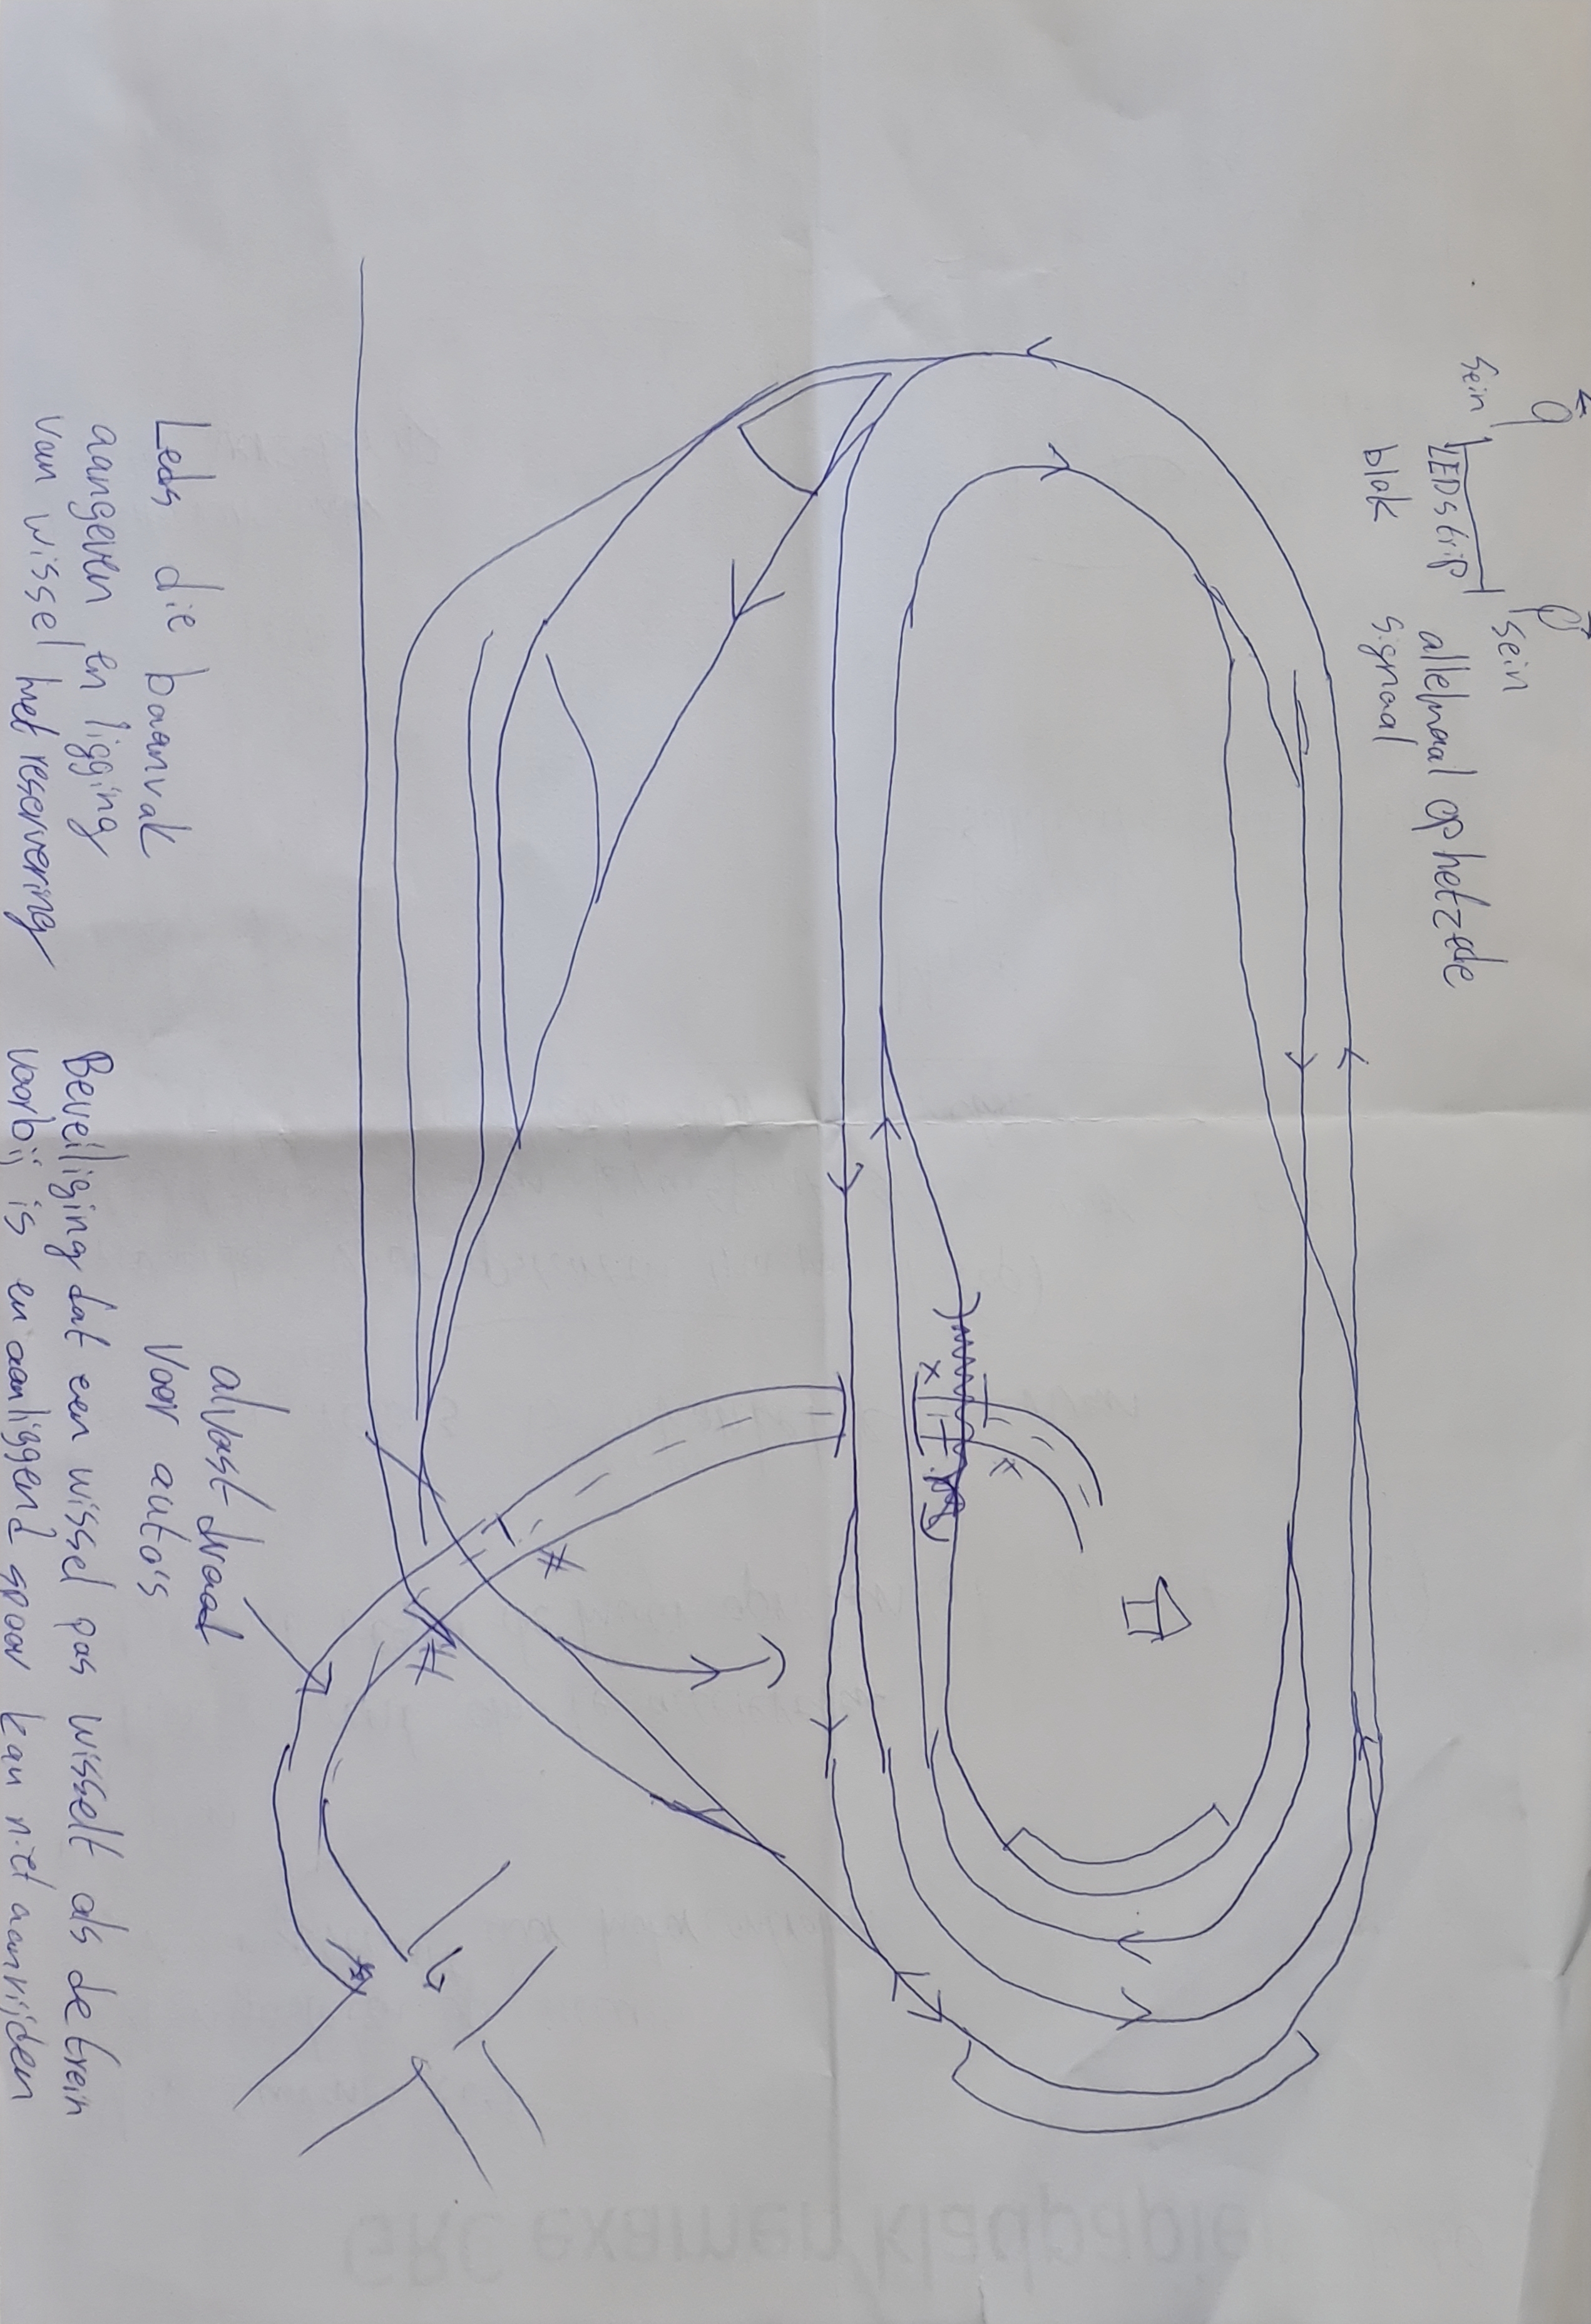 sein
sein
LEDstrip
allemaal op hetzede
blok
signaal
Leds die baanvak
aangeven en ligging
van wissel met reservering
alvast draad
voor auto's
Beveiliging dat een wissel pas wisselt als de trein
voorbij is en aanliggend spoor kan niet aanrijden
GRC examen/kladpapier